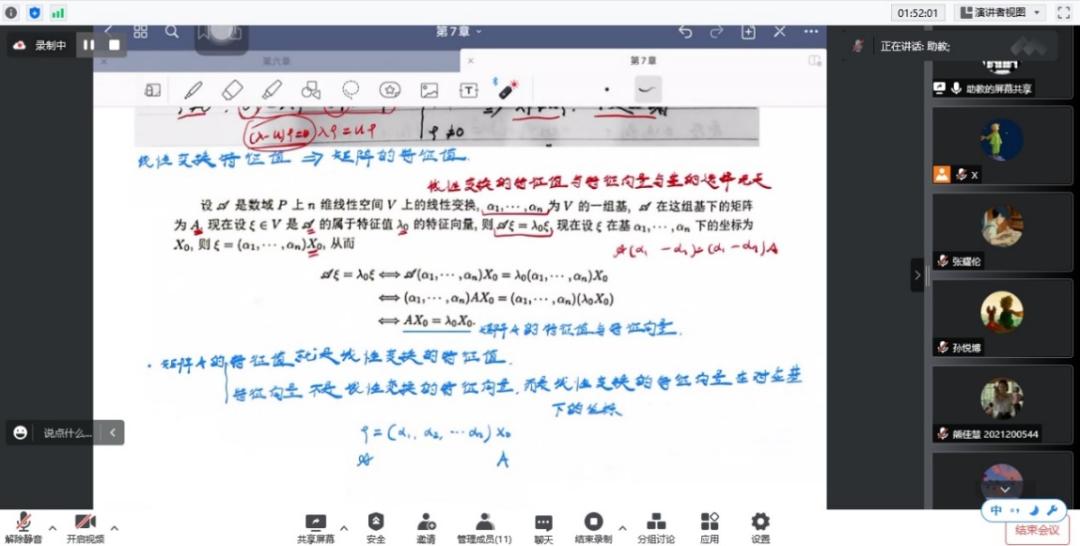 01:52:01 演讲者视图
录制中
第7章
正在讲话: 助教;
第六章
第7章
(λ-u)ρ=0 λρ=uρ ρ≠0
线性变换特征值 ⇒ 矩阵的特征值.
线性变换的特征值与特征向量与基的选择无关
设 𝒜 是数域 P 上 n 维线性空间 V 上的线性变换, α₁,⋯,αₙ 为 V 的一组基, 𝒜 在这组基下的矩阵
为 A, 现在设 ξ ∈ V 是 𝒜 的属于特征值 λ₀ 的特征向量, 则 𝒜ξ = λ₀ξ, 现在设 ξ 在基 α₁,⋯,αₙ 下的坐标为
X₀, 则 ξ = (α₁,⋯,αₙ)X₀, 从而
𝒜(α₁ – αₙ)=(α₁ – αₙ)A
𝒜ξ = λ₀ξ ⟺ 𝒜(α₁,⋯,αₙ)X₀ = λ₀(α₁,⋯,αₙ)X₀
⟺ (α₁,⋯,αₙ)AX₀ = (α₁,⋯,αₙ)(λ₀X₀)
⟺ AX₀ = λ₀X₀. 矩阵A的特征值与特征向量.
· 矩阵A的特征值就是线性变换的特征值.
特征向量不是线性变换的特征向量, 而是线性变换的特征向量在对应基
下的坐标
ρ = (α₁, α₂, ⋯ αₙ) X₀
𝒜 A
助教的屏幕共享
X
张耀伦
孙悦博
熊佳慧 2021200544
说点什么...
中
解除静音 开启视频 共享屏幕 安全 邀请 管理成员(11) 聊天 结束录制 分组讨论 应用 设置 结束会议